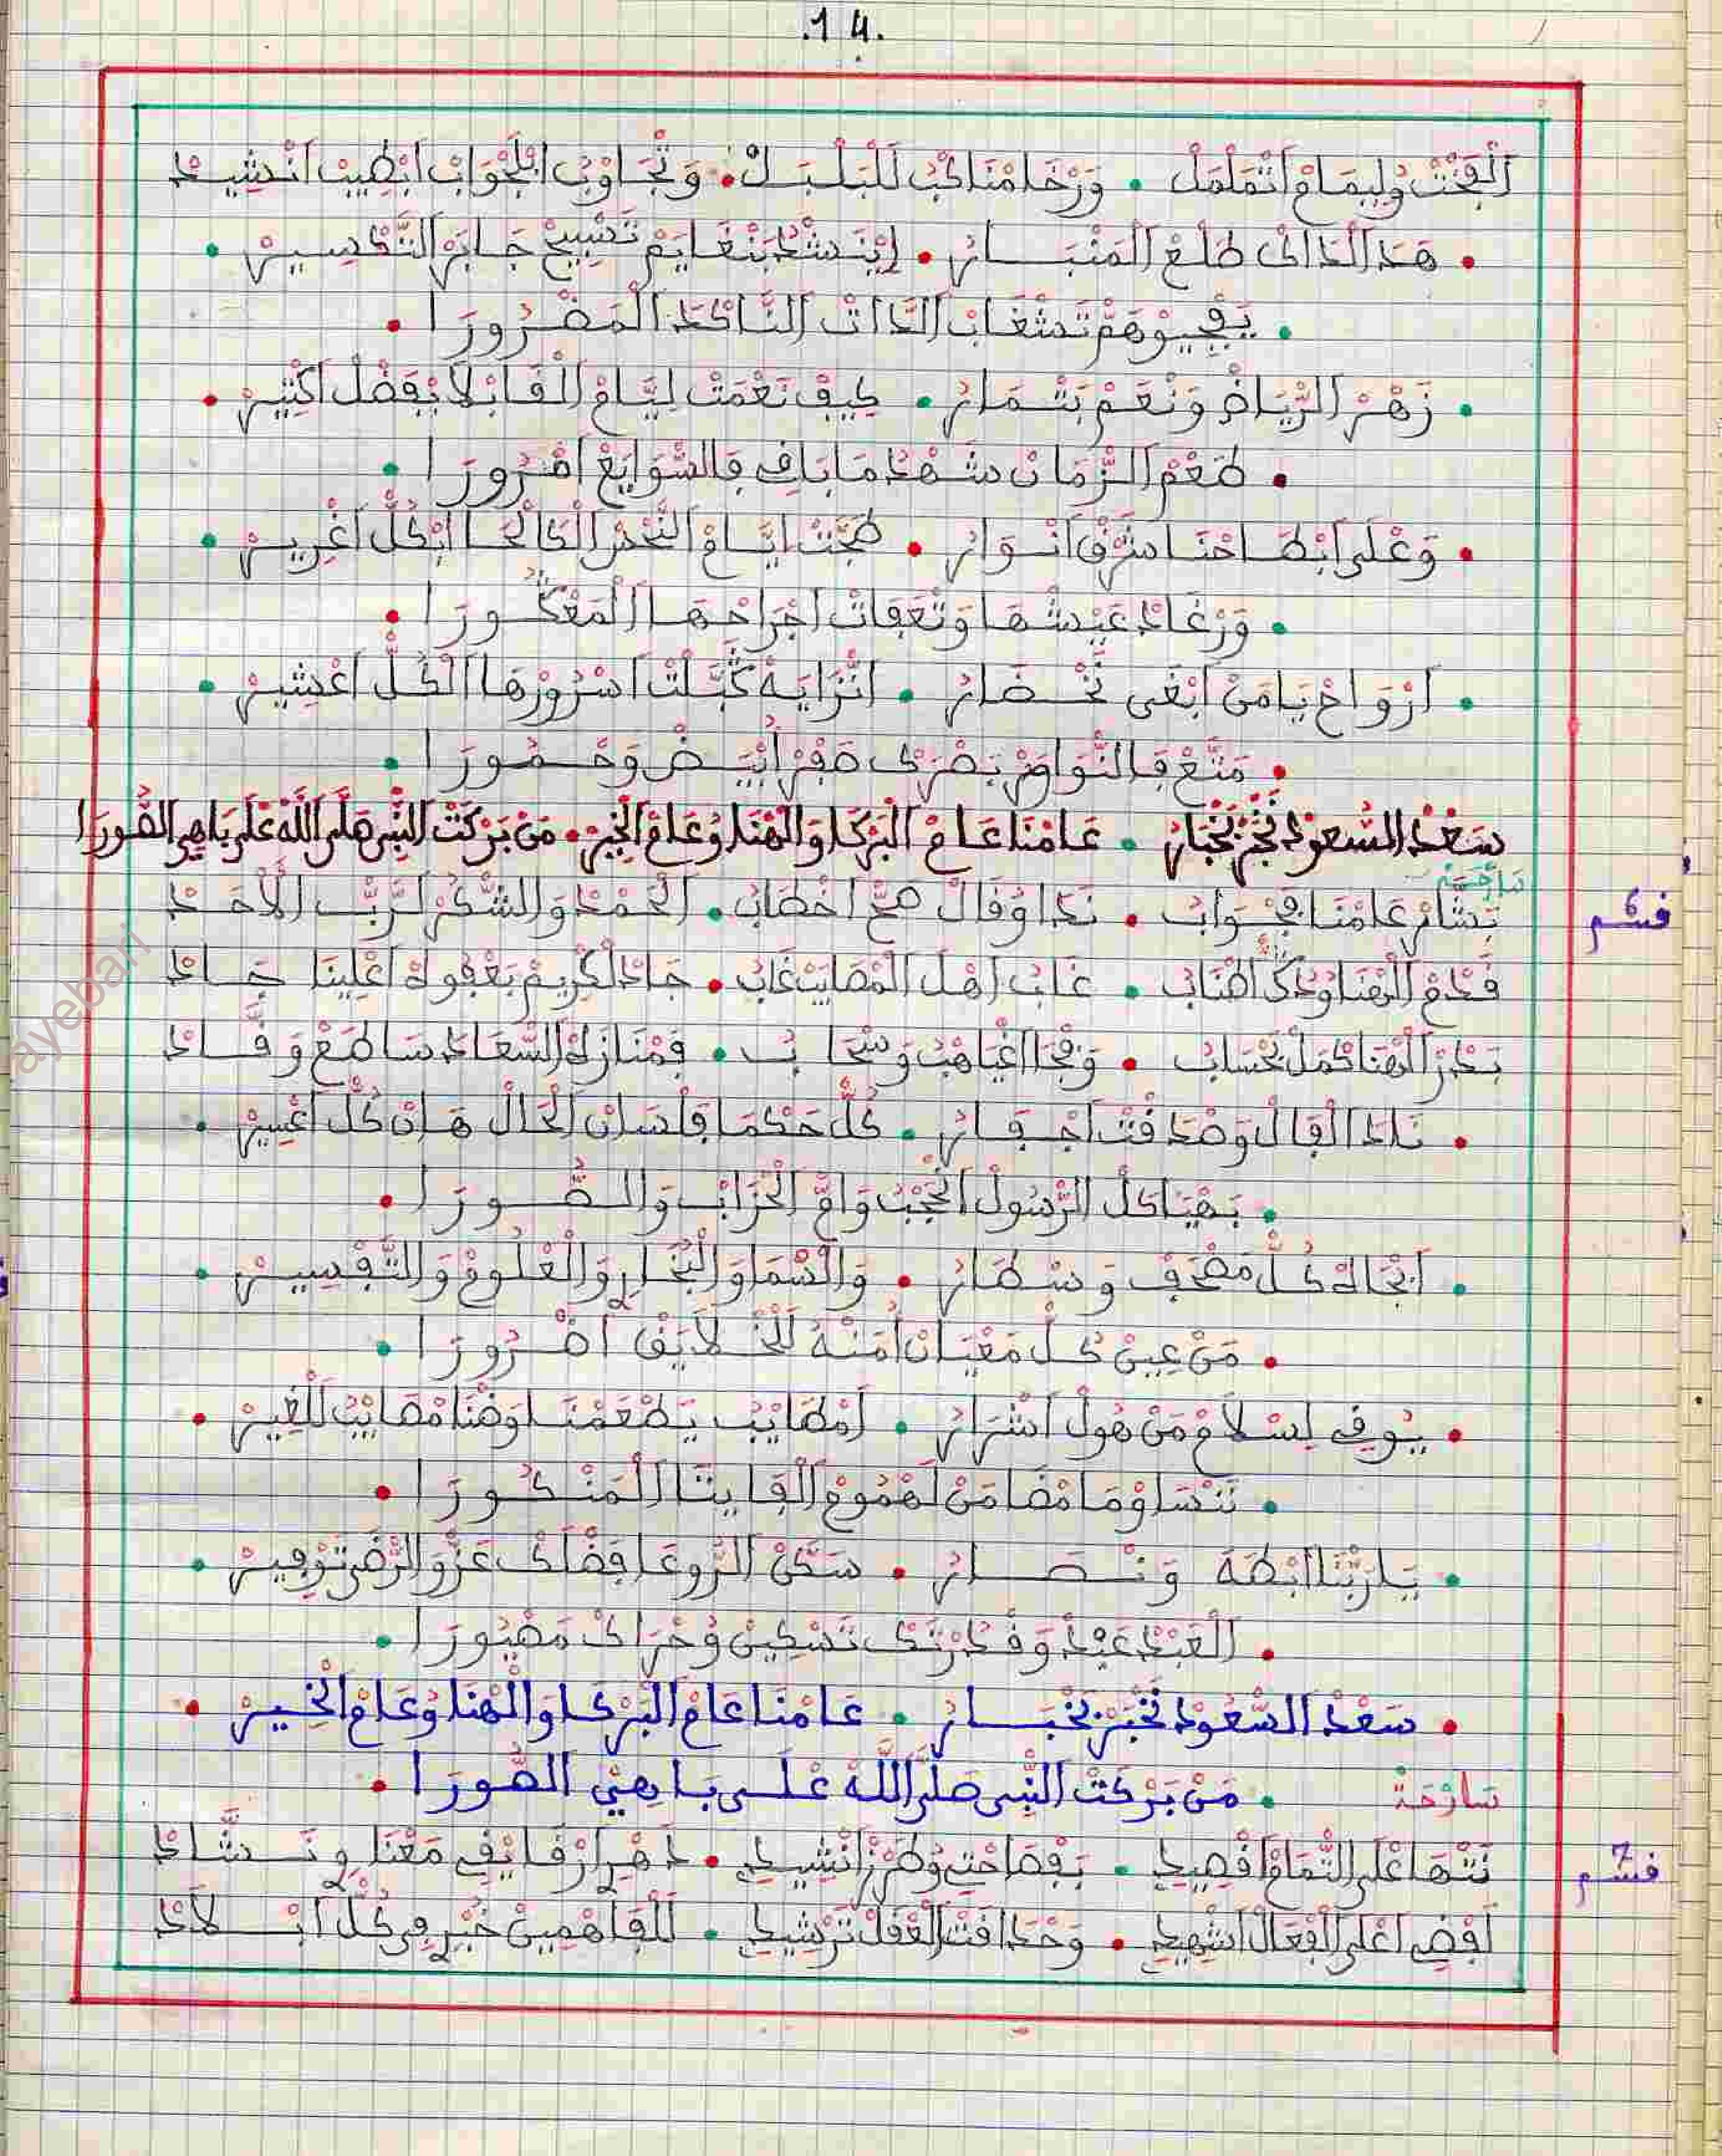 .14.
اَلْبَخْتْ وُلِيمَامْ اَتْمَلْمَلْ • وَرْخَا مْنَاكْبُ لَلْبَلْبَلْ • وَتْجَاوْبُ ابْلَجْوَابْ ابْطِيبْ انْشِيدْ
• هَدَ الَّدَاكْ طْلَعْ الْمَنْبَارْ • يَنْشَدْ بَنْغَايَمْ تَسْبِيحْ جَابَرْ التَّكْسِيرْ •
• يَفْجِيوْ هَمّْ تَشْغَابْ الدَّاتْ النَّاكْدَ الْمَضْرُورَا •
• زَهْرْ الرْيَاضْ وَنْعَمْ بَتْمَارْ • كِيفْ نَعْمَتْ لِيَّامْ الْقَابْلَا بْفَضْلْ اكْتِيرْ •
• طَعْمْ الزّْمَانْ شَهْدْ مَا بَاقِ فَالسّْوَايَعْ امْرُورَا •
• وَعْلَى ابْطَاحْنَا شَرْقْ انْوَارْ • طَحْتْ ايَّامْ النَّحْسْ الْكَالْحَا ابْكُلّْ اغْيِيرْ •
• وَرْغَادْ عَيْشْهَا وَتْعَفَاتْ اجْرَاحْهَا الْمَعْكُورَا •
• اَرْوَاحْ يَا مَنْ ابْغَى نَحْضَارْ • انْزَايَهْ كَبَّلَتْ اسْرُورْهَا الْكُلّْ اعْشِيرْ •
• مَتَّعْ فَالنّْوَاوَرْ بَصْرَكْ صَفْرْ ابْيَضْ وَحْمُورَا •
سَعْدْ السّْعُودْ نَجْبَرْ بَخْبَارْ • عَامْنَا عَامْ الْبَرْكَا وَالْهْنَا وُعَامْ الْخِيرْ • مَنْ بَرْكَتْ النّْبِي صَلَّى اللَّهْ عْلَى بَاهِي الصُّورَا
سَارْحَة
قسم 6
بَشَّارْ عَامْنَا فَجْوَابُ • نَدَا وُقَالْ صَحّْ اخْطَابُ • الْحَمْدْ وَالشُّكْرْ لَرَّبّْ الْأَحَدْ
قْدَمْ الْهْنَا وُدَكّْ اطْنَابُ • غَابُ اهْلْ الْمْصَايَبْ غَابُ • جَادْ الْكْرِيمْ بَعْفُوهْ اعْلِينَا جَادْ
بَدْرْ الْهْنَا كْمَلْ بَحْسَابُ • وَفْجَا اغْيَاهْبُ وَسْحَابُ • فَمْنَازَلْ السّْعَادَ سَاطَعْ وَقَّادْ
• نَادَ الْفَالْ وَصْدَقْتْ اجْفَارْ • كُلّْ حَكْمَا فَلْسَانْ الْحَالْ هَانْ كُلّْ اعْسِيرْ •
• بَهْيَاكَلْ الرَّسُولْ الْحُجْبُ وَامّْ الْحْزَابْ وَالصُّورَا •
• ابْجَاهْ كُلّْ مَصْحَفْ وَسْطَارْ • وَالسّْمَا وَالْبْحَارِ وَالْعْلُومْ وَالتَّفْسِيرْ •
• مَنْ عِينْ كُلّْ مَعْيَانْ امْنَهْ لَلْخْلَايَقْ اضْرُورَا •
• يُوقِى لِسْلَامْ مَنْ هُولْ اشْرَارْ • اَمْطَايَبْ يَطْعَمْنَا وَهْنَا مْصَايَبْ لَلْغِيرْ •
• نَنْسَاوْ مَا مْضَا مَنْ لَهْمُومْ الْفَايْتَا الْمَنْكُورَا •
• يَا رَبّْنَا ابْطَهَ وَنْصَارْ • سَكَّنْ الرُّوعَا فَضْلَكْ عَزّْ وَالرّْضَى تَوْفِيرْ •
• الْعَبْدْ عَبْدْ وَقْدَرْتَكْ تَسْكِينْ وُحْرَاكْ مَصْبُورَا •
• سَعْدْ السّْعُودْ نَجْبَرْ بَخْبَارْ • عَامْنَا عَامْ الْبَرْكَا وَالْهْنَا وُعَامْ الْخِيرْ •
سَارْحَة • مَنْ بَرْكَتْ النّْبِي صَلَّى اللَّهْ عْلَى بَاهِيْ الصُّورَا •
قسم 7
نَتْهَا عْلَى التّْمَامْ اقْصِيدِ • بَفْصَاحْتِي وُطَرْزْ انْشِيدِ • دَهْرِ ارْقَايْقِي مَعْنَا وِنَشَّادْ
اَفْضِي اعْلَى الْفْعَالْ اشْهِيدِ • وَحْدَاقْتْ الْعْقَلْ تَرْشِيدِ • لَلْفَاهْمِينْ خْبَرِ فِي كُلّْ ابْلَادْ